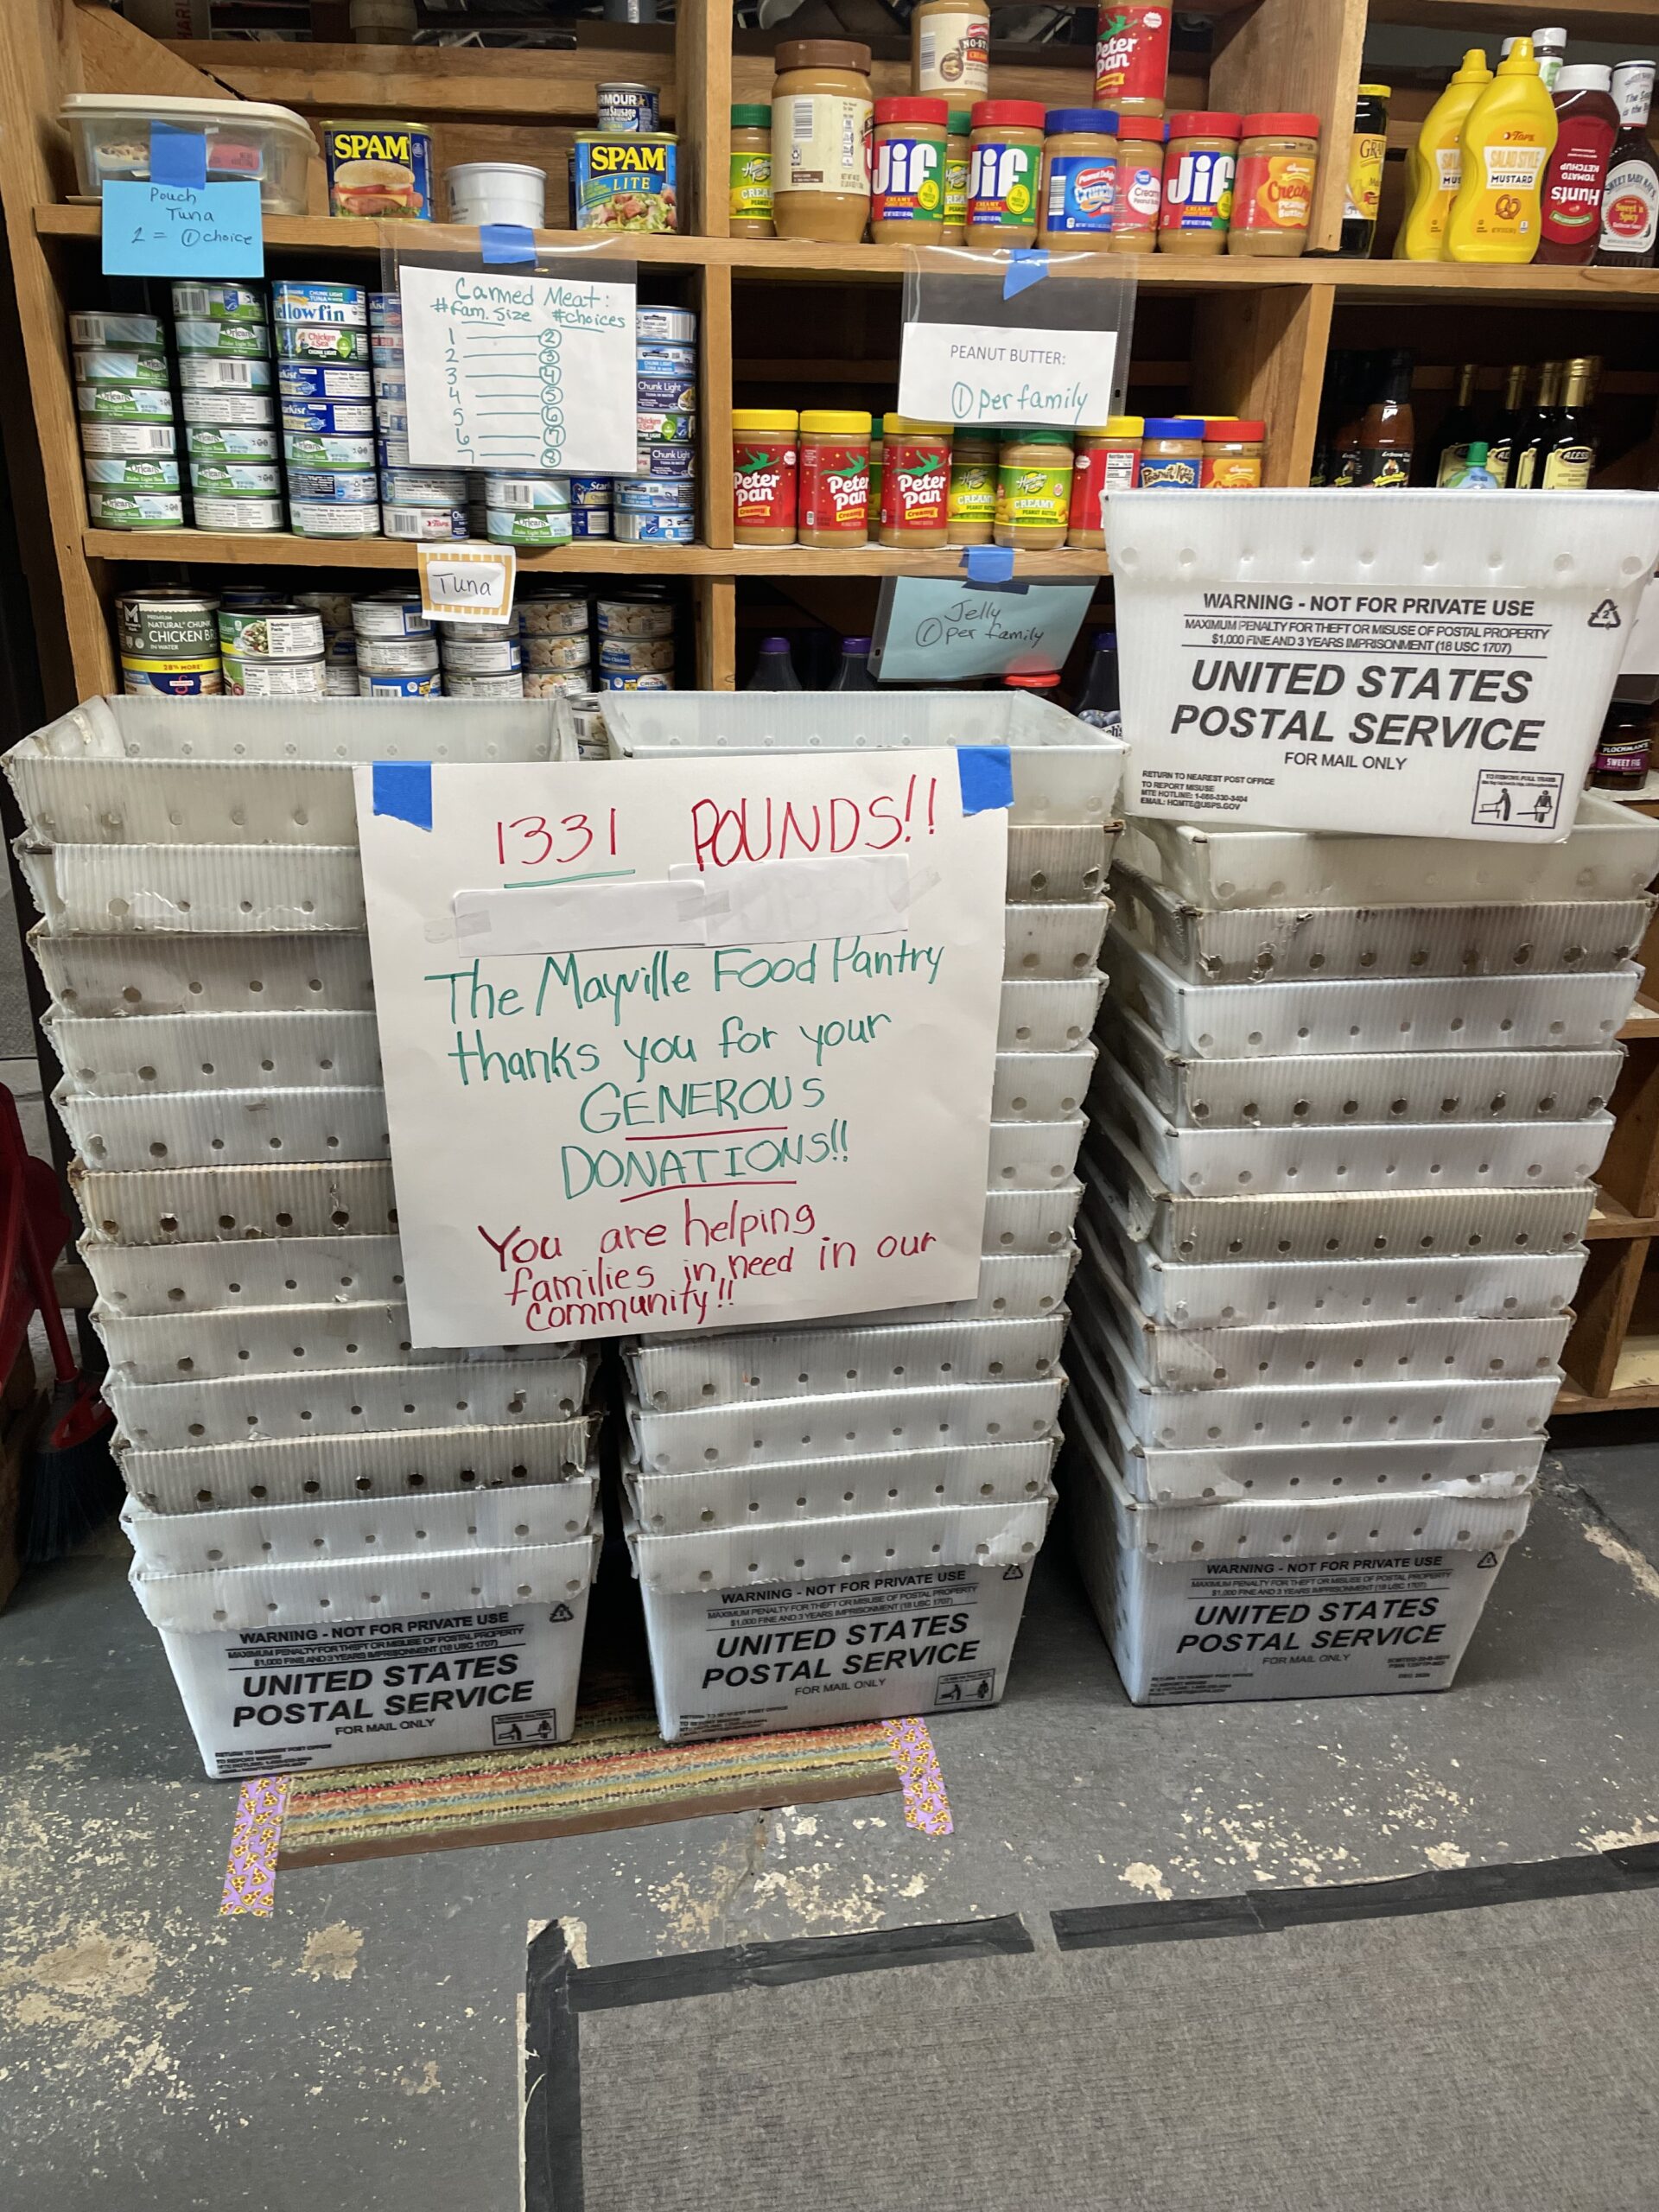 ARMOUR
SPAM
SPAM
LITE
Peter
Pan
Creamy
Jif
CREAMY
Jif
CREAMY
Jif
Creamy
SALAD STYLE
MUSTARD
Hunt's
TOMATO
KETCHUP
SWEET BABY RAY'S
Sweet 'n
Spicy
Pouch
Tuna
2 = ① choice
Canned Meat:
#Fam. Size #choices
1 ②
2 ③
3 ④
4 ⑤
5 ⑥
6 ⑦
7 ⑧
PEANUT BUTTER:
① per family
Chunk Light
Chunk Light
Peter
Pan
Peter
Pan
Creamy
Peter
Pan
Creamy
CREAMY
CREAMY
Tuna
Jelly
① per family
PREMIUM
NATURAL* CHUNK
CHICKEN BR
IN WATER
WARNING - NOT FOR PRIVATE USE
MAXIMUM PENALTY FOR THEFT OR MISUSE OF POSTAL PROPERTY
$1,000 FINE AND 3 YEARS IMPRISONMENT (18 USC 1707)
UNITED STATES
POSTAL SERVICE
FOR MAIL ONLY
RETURN TO NEAREST POST OFFICE
TO REPORT MISUSE
MTE HOTLINE: 1-866-330-3404
EMAIL: HQMTE@USPS.GOV
PLOCHMAN'S
SWEET FIG
1331 POUNDS!!
The Mayville Food Pantry
thanks you for your
GENEROUS
DONATIONS!!
You are helping
families in need in our
community!!
WARNING - NOT FOR PRIVATE USE
MAXIMUM PENALTY FOR THEFT OR MISUSE OF POSTAL PROPERTY
$1,000 FINE AND 3 YEARS IMPRISONMENT (18 USC 1707)
UNITED STATES
POSTAL SERVICE
FOR MAIL ONLY
WARNING - NOT FOR PRIVATE USE
MAXIMUM PENALTY FOR THEFT OR MISUSE OF POSTAL PROPERTY
$1,000 FINE AND 3 YEARS IMPRISONMENT (18 USC 1707)
UNITED STATES
POSTAL SERVICE
FOR MAIL ONLY
WARNING - NOT FOR PRIVATE USE
MAXIMUM PENALTY FOR THEFT OR MISUSE OF POSTAL PROPERTY
$1,000 FINE AND 3 YEARS IMPRISONMENT (18 USC 1707)
UNITED STATES
POSTAL SERVICE
FOR MAIL ONLY